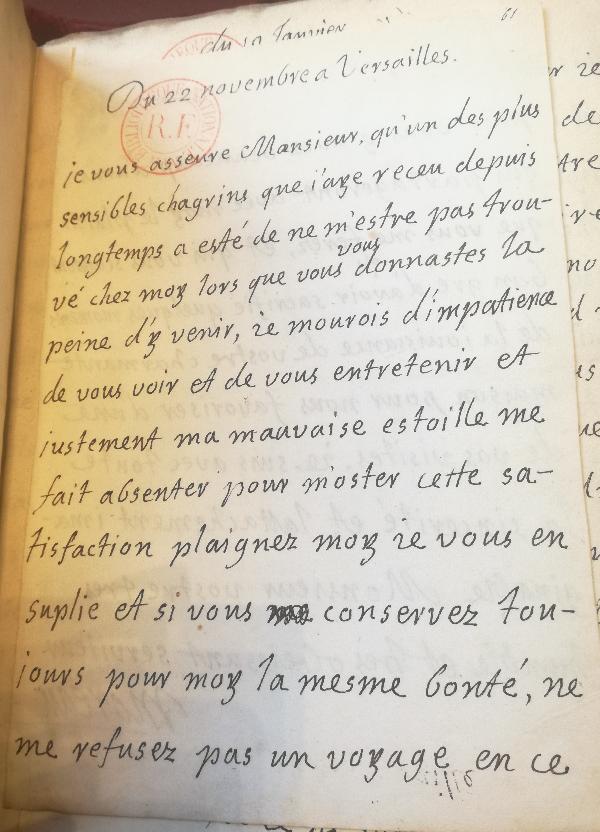 61
du 10 Janvier
Du 22 novembre a Versailles.
R.F.
je vous asseure Monsieur, qu'un des plus
sensibles chagrins que j'aye receu depuis
longtemps a esté de ne m'estre pas trou-
vous
vé chez moy lors que vous donnastes la
peine d'y venir, ie mourois d'impatience
de vous voir et de vous entretenir et
justement ma mauvaise estoille me
fait absenter pour m'oster cette sa-
tisfaction plaignez moy ie vous en
suplie et si vous conservez tou-
jours pour moy la mesme bonté, ne
me refusez pas un voyage en ce